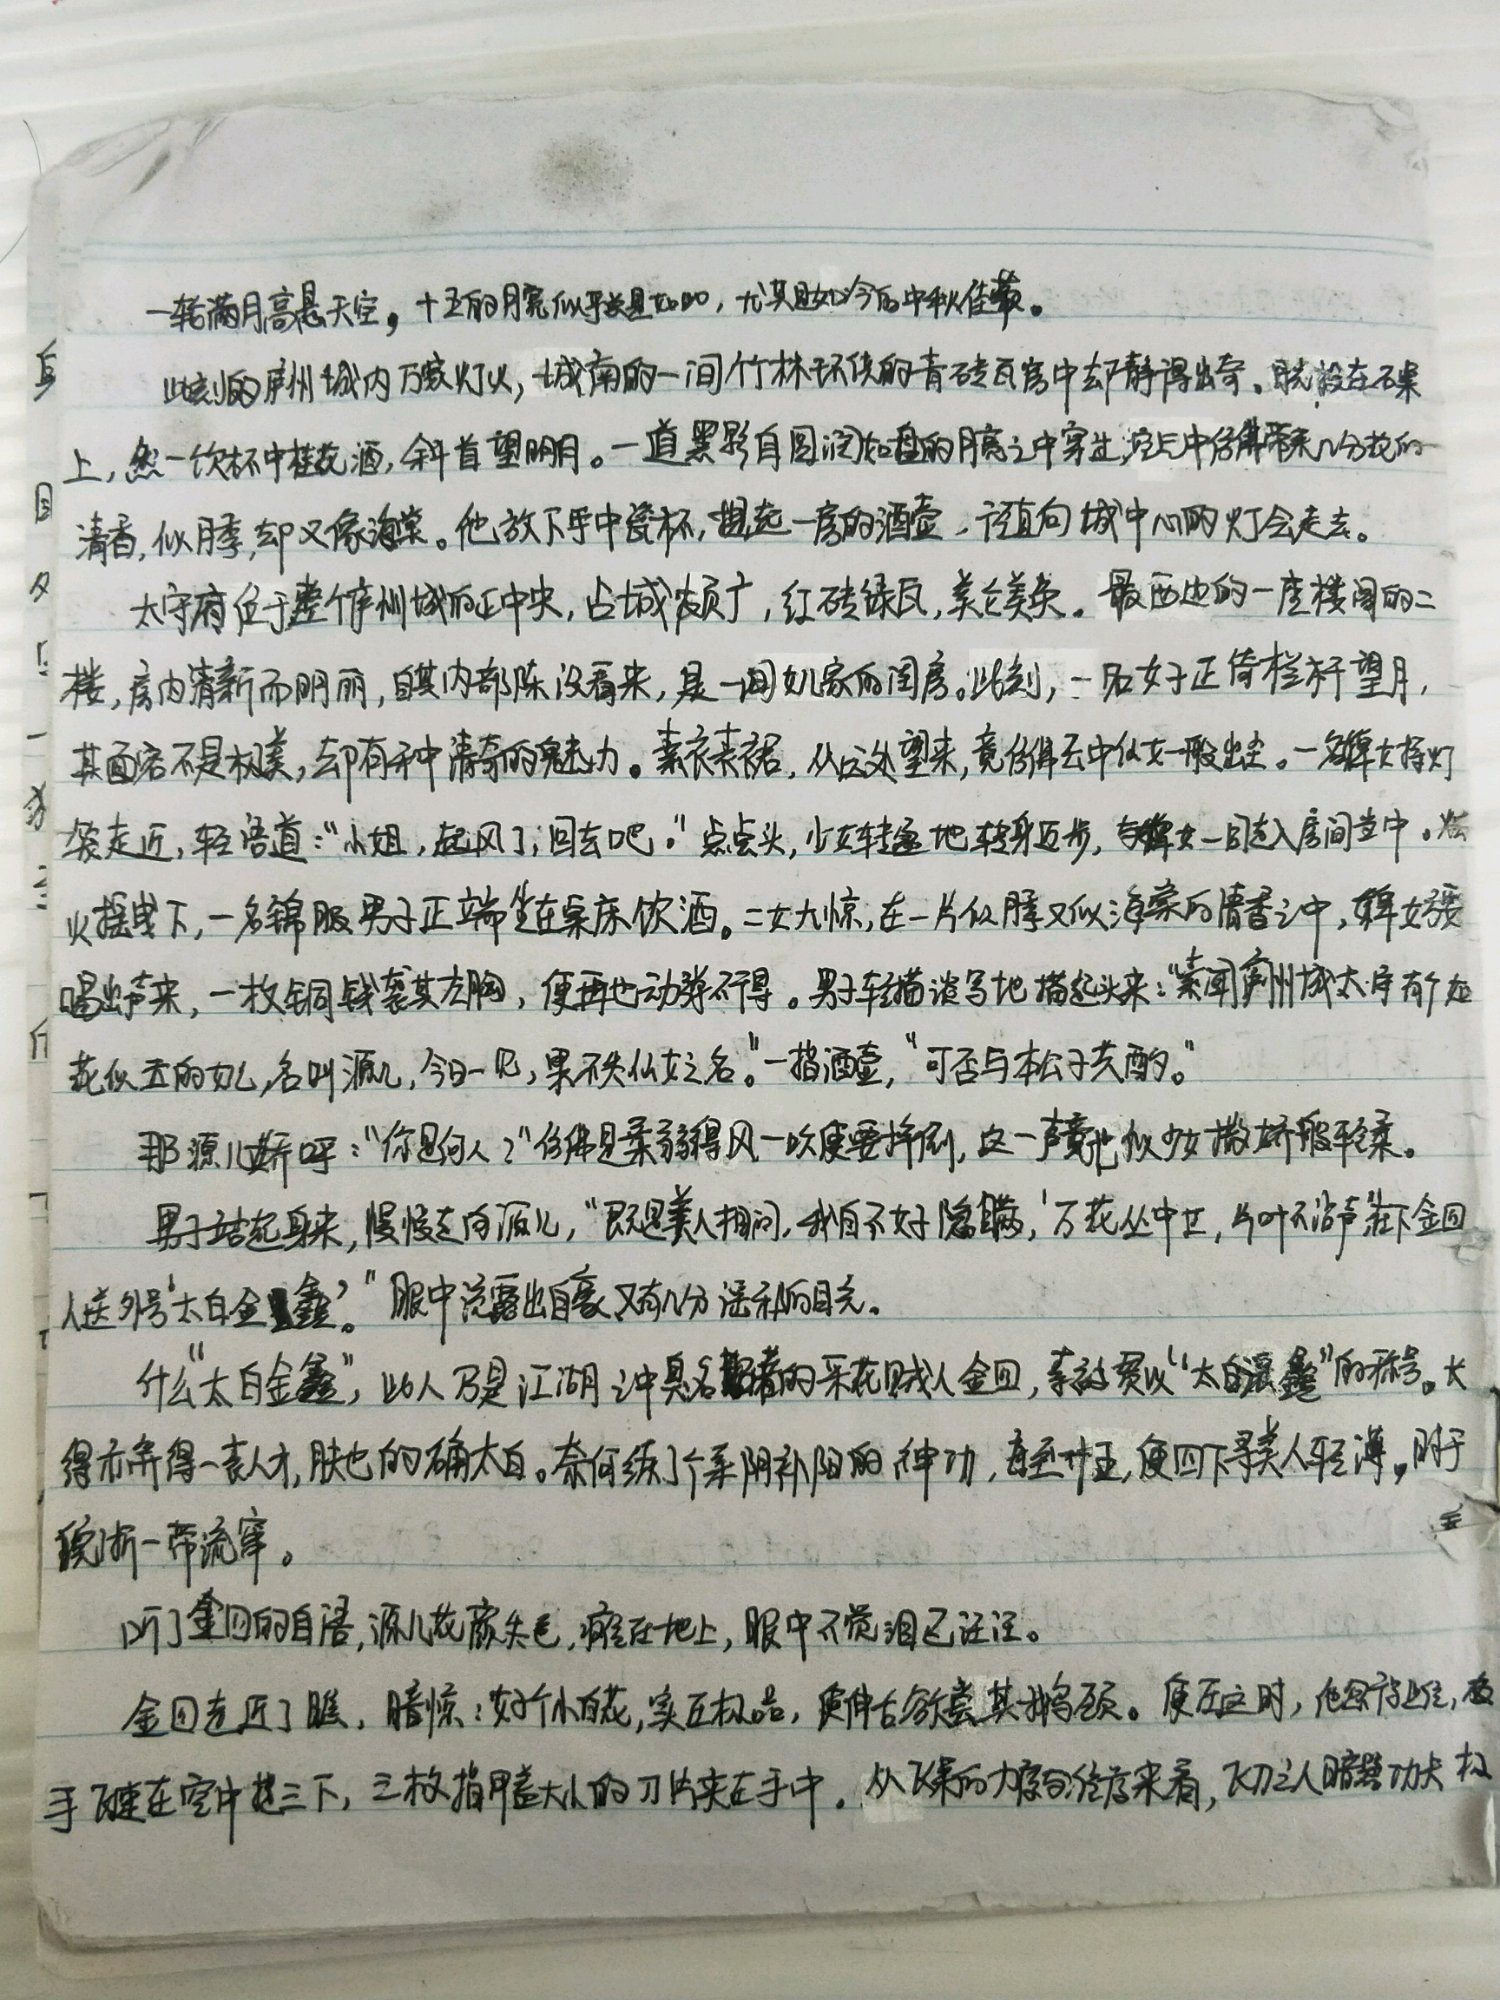 一轮满月高悬天空，十五的月亮似乎总是如此，尤其是如今的中秋佳节。
此刻的庐州城内万家灯火，城南的一间竹林环侠的青砖瓦房中却静得出奇。
上，一饮杯中桂花酒，斜首望明月。一道黑影自圆润如盘的月亮之中穿过，空气中仿佛带来几分花的
清香，似月季，却又像海棠。他放下手中瓷杯，提起一旁的酒壶，径直向城中心的灯会走去。
太守府位于整个庐州城的正中央，占城颇广，红砖绿瓦，美仑美奂。最西边的一座楼阁的二
楼，房内清新而明丽，自其内部陈设看来，是一间女儿家的闺房。此刻，一名女子正倚栏杆望月，
其面容不是极美，却有种清奇的魅力。素衣素裙，从远处望来，竟仿佛云中仙女一般出尘。一名婢女持灯
袋走近，轻语道："小姐，起风了，回去吧。"点点头，少女轻盈地转身迈步，与婢女一同走入房间当中。
火摇曳下，一名锦服男子正端坐在桌床饮酒。二女大惊，在一片似月季又似海棠的清香之中，婢女要
喝出声来，一枚铜钱袭其左胸，便再也动弹不得。男子轻描淡写地抬起头来："素闻庐州城太守有个如
花似玉的女儿，名叫源儿，今日一见，果不失仙女之名。"一指酒壶，"可否与本公子共酌。"
那源儿娇呼："你是何人？"仿佛是柔弱得风一吹便要摔倒，这一声竟也似少女撒娇般轻柔。
男子站起身来，慢慢走向源儿，"既是美人相问，我自不好隐瞒，'万花丛中过，片叶不沾声'在下金回
人送外号'太白金鑫'。"眼中流露出自豪又有几分淫秽的目光。
什么"太白金鑫"，此人乃是江湖之中臭名昭著的采花贼人金回，素被冠以"太白淫鑫"的称号。长
得亦算得一表人才，肤也的确太白。奈何练了个采阴补阳的神功，每至十五，便四下寻美人轻薄，时于
皖浙一带流窜。
听了金回的自语，源儿花颜失色，瘫在地上，眼中不觉泪已汪汪。
金回走近了瞧，暗惊：好个小百花，实在极品，便伸舌欲尝其鹅颈。便在这时，他忽停住，
手飞速在空中三下，三枚指甲盖大小的刀片夹在手中。从飞来的力度与经度来看，飞刀之人暗器功夫极